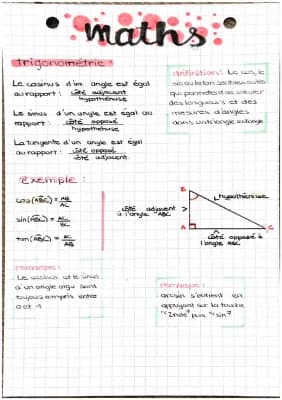 maths
trigonométrie :
Le cosinus d'un angle est égal
au rapport : côté adjacent
hypothénuse
Le sinus d'un angle est égal au
rapport : côté opposé
hypothénuse
La tangente d'un angle est égal
au rapport : côté opposé
côté adjacent
définition : Le cos, le
sin ou la tan sont des outils
qui permettent de calculer
des longueurs et des
mesures d'angles
dans un triangle rectangle
Exemple :
cos(ABC) = AB
BC
sin(ABC) = AC
BC
tan(ABC) = AC
AB
B
hypothénuse
côté adjacent >
à l'angle ABC
A
C
côté opposé à
l'angle ABC
remarques :
Le cosinus et le sinus
d'un angle aigu sont
toujours compris entre
0 et 1
remarque :
arcsin s'obtient en
appuyant sur la touche
"2nde" puis "sin"